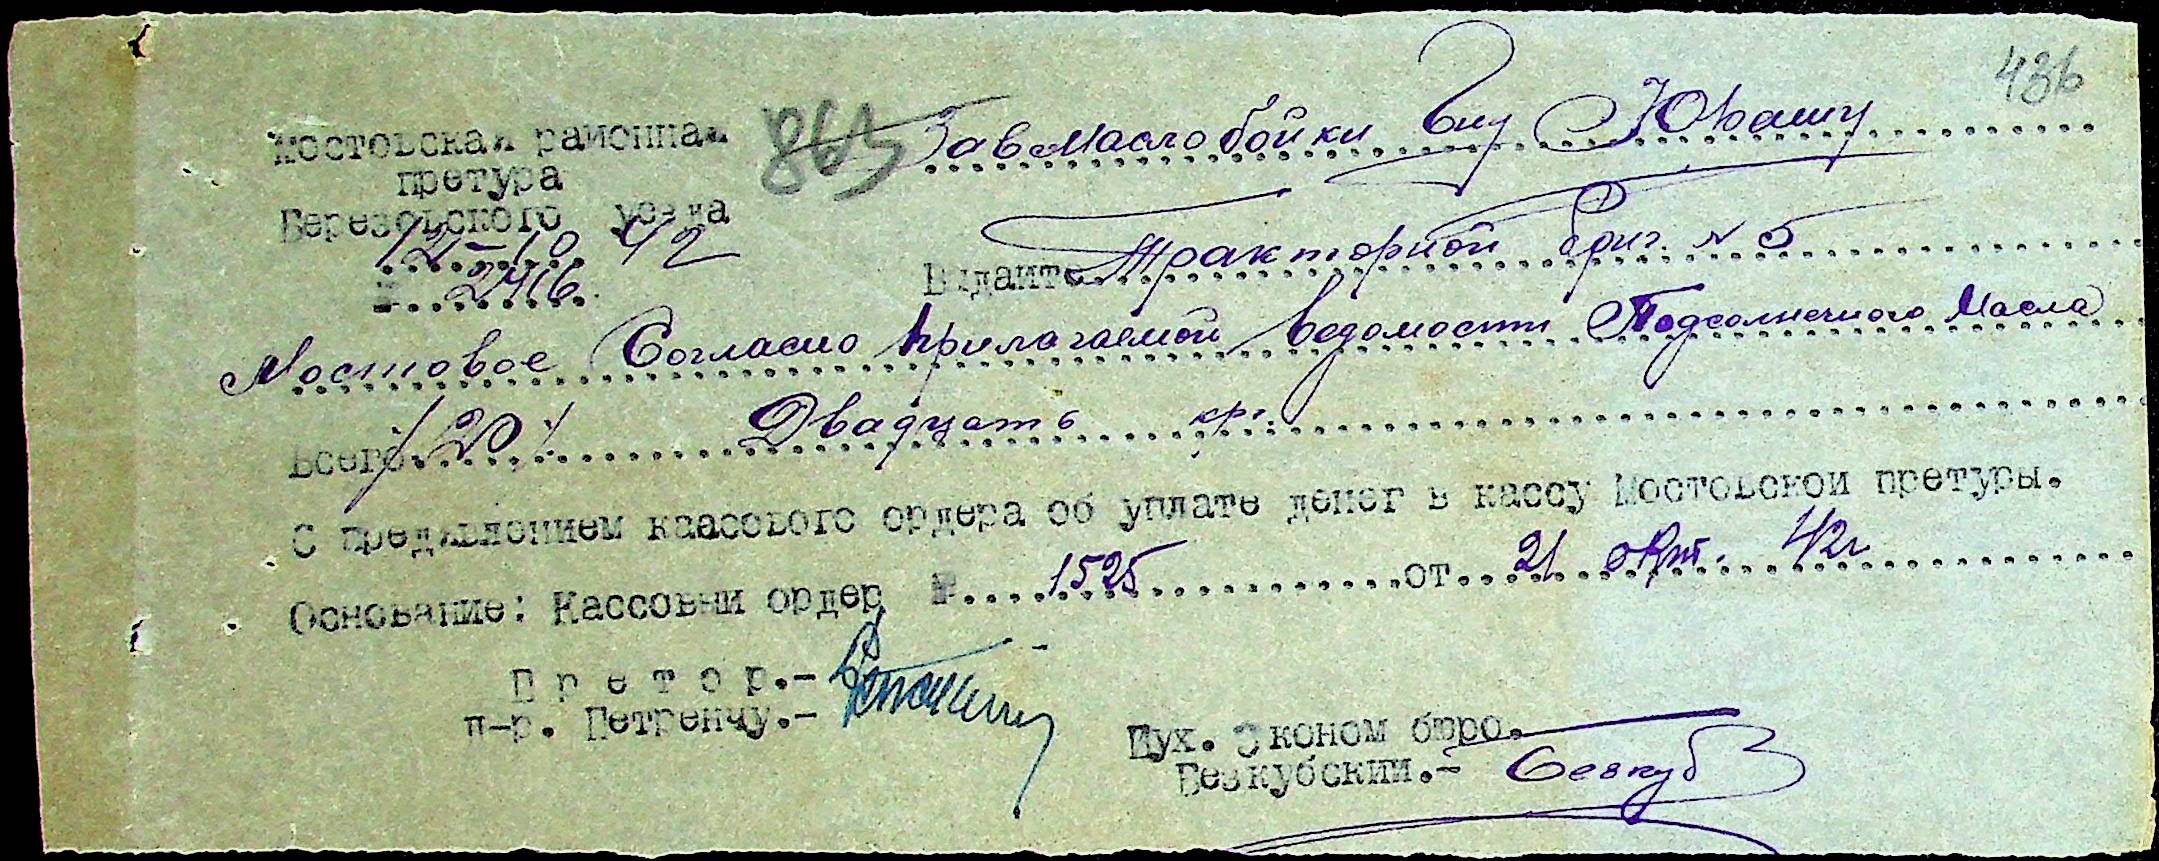 436
Мостовская районная
претура
Березовского уезда
12-10 42
№ 2416
865
Завмаслобойки Гну Юрашу
Выдайте Тракторной бриг. № 5
Мостовое Согласно прилагаемой ведомости Подсолнечного Масла
Всего /20/ Двадцать кгр.
С предявлением каассового ордера об уплате денег в кассу Мостовской претуры.
Основание: Кассовый ордер № 1525 от 21 окт. 42г
П р е т о р.-
п-р. Петренчу.-
Бух. Эконом бюро.
Безкубский.- Безкуб